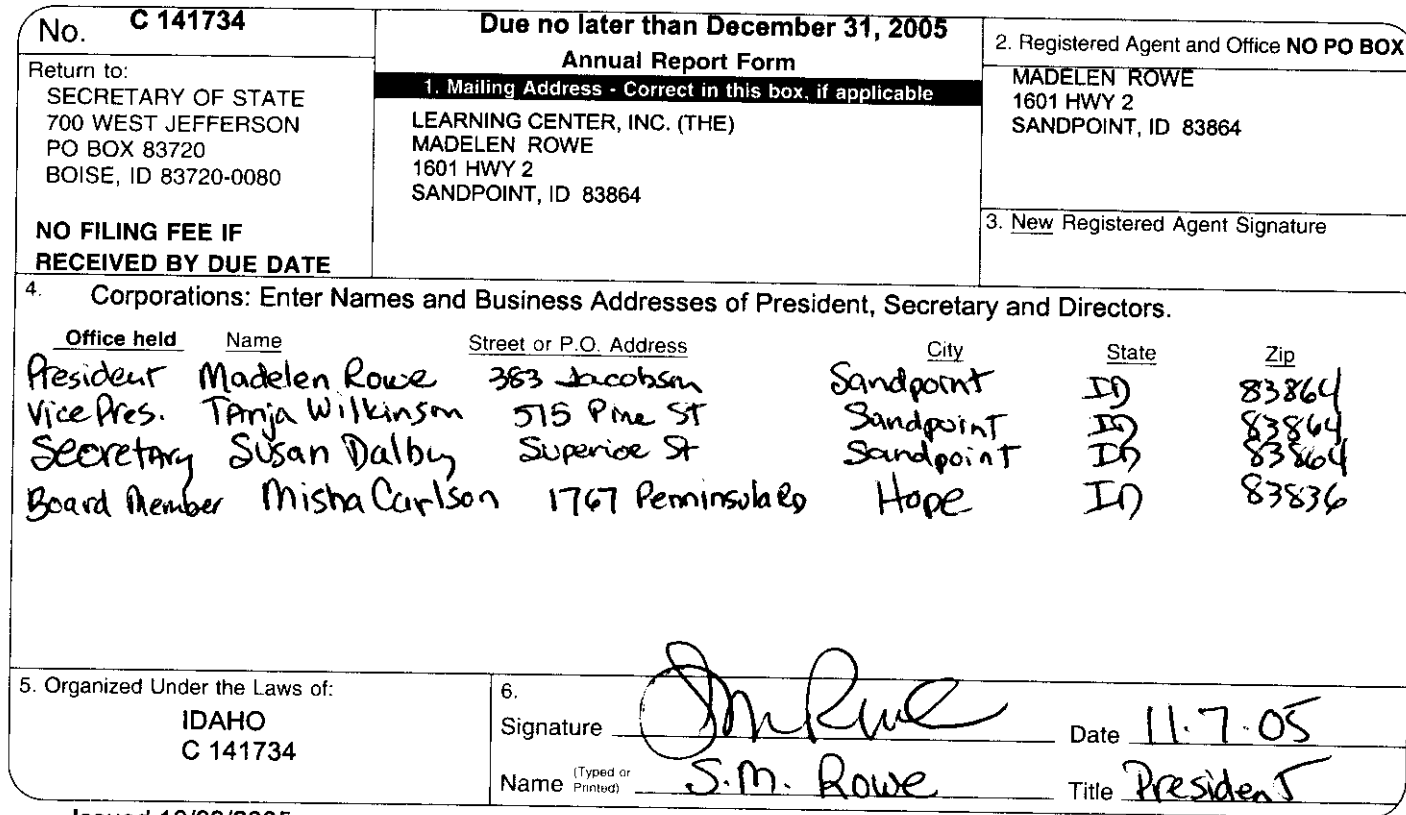 No. C 141734
Return to:
SECRETARY OF STATE
700 WEST JEFFERSON
PO BOX 83720
BOISE, ID 83720-0080
NO FILING FEE IF
RECEIVED BY DUE DATE
Due no later than December 31, 2005
Annual Report Form
1. Mailing Address - Correct in this box, if applicable
LEARNING CENTER, INC. (THE)
MADELEN ROWE
1601 HWY 2
SANDPOINT, ID 83864
2. Registered Agent and Office NO PO BOX
MADELEN ROWE
1601 HWY 2
SANDPOINT, ID 83864
3. New Registered Agent Signature
4. Corporations: Enter Names and Business Addresses of President, Secretary and Directors.
Office held Name Street or P.O. Address City State Zip
President Madelen Rowe 383 Jacobson Sandpoint ID 83864
Vice Pres. Tanja Wilkinson 515 Pine St Sandpoint ID 83864
Secretary Susan Dalby Superior St Sandpoint ID 83864
Board Member Misha Carlson 1767 Penninsula Rd Hope ID 83836
5. Organized Under the Laws of:
IDAHO
C 141734
6.
Signature SM Rowe Date 11.7.05
Name (Typed or Printed) S.M. Rowe Title President